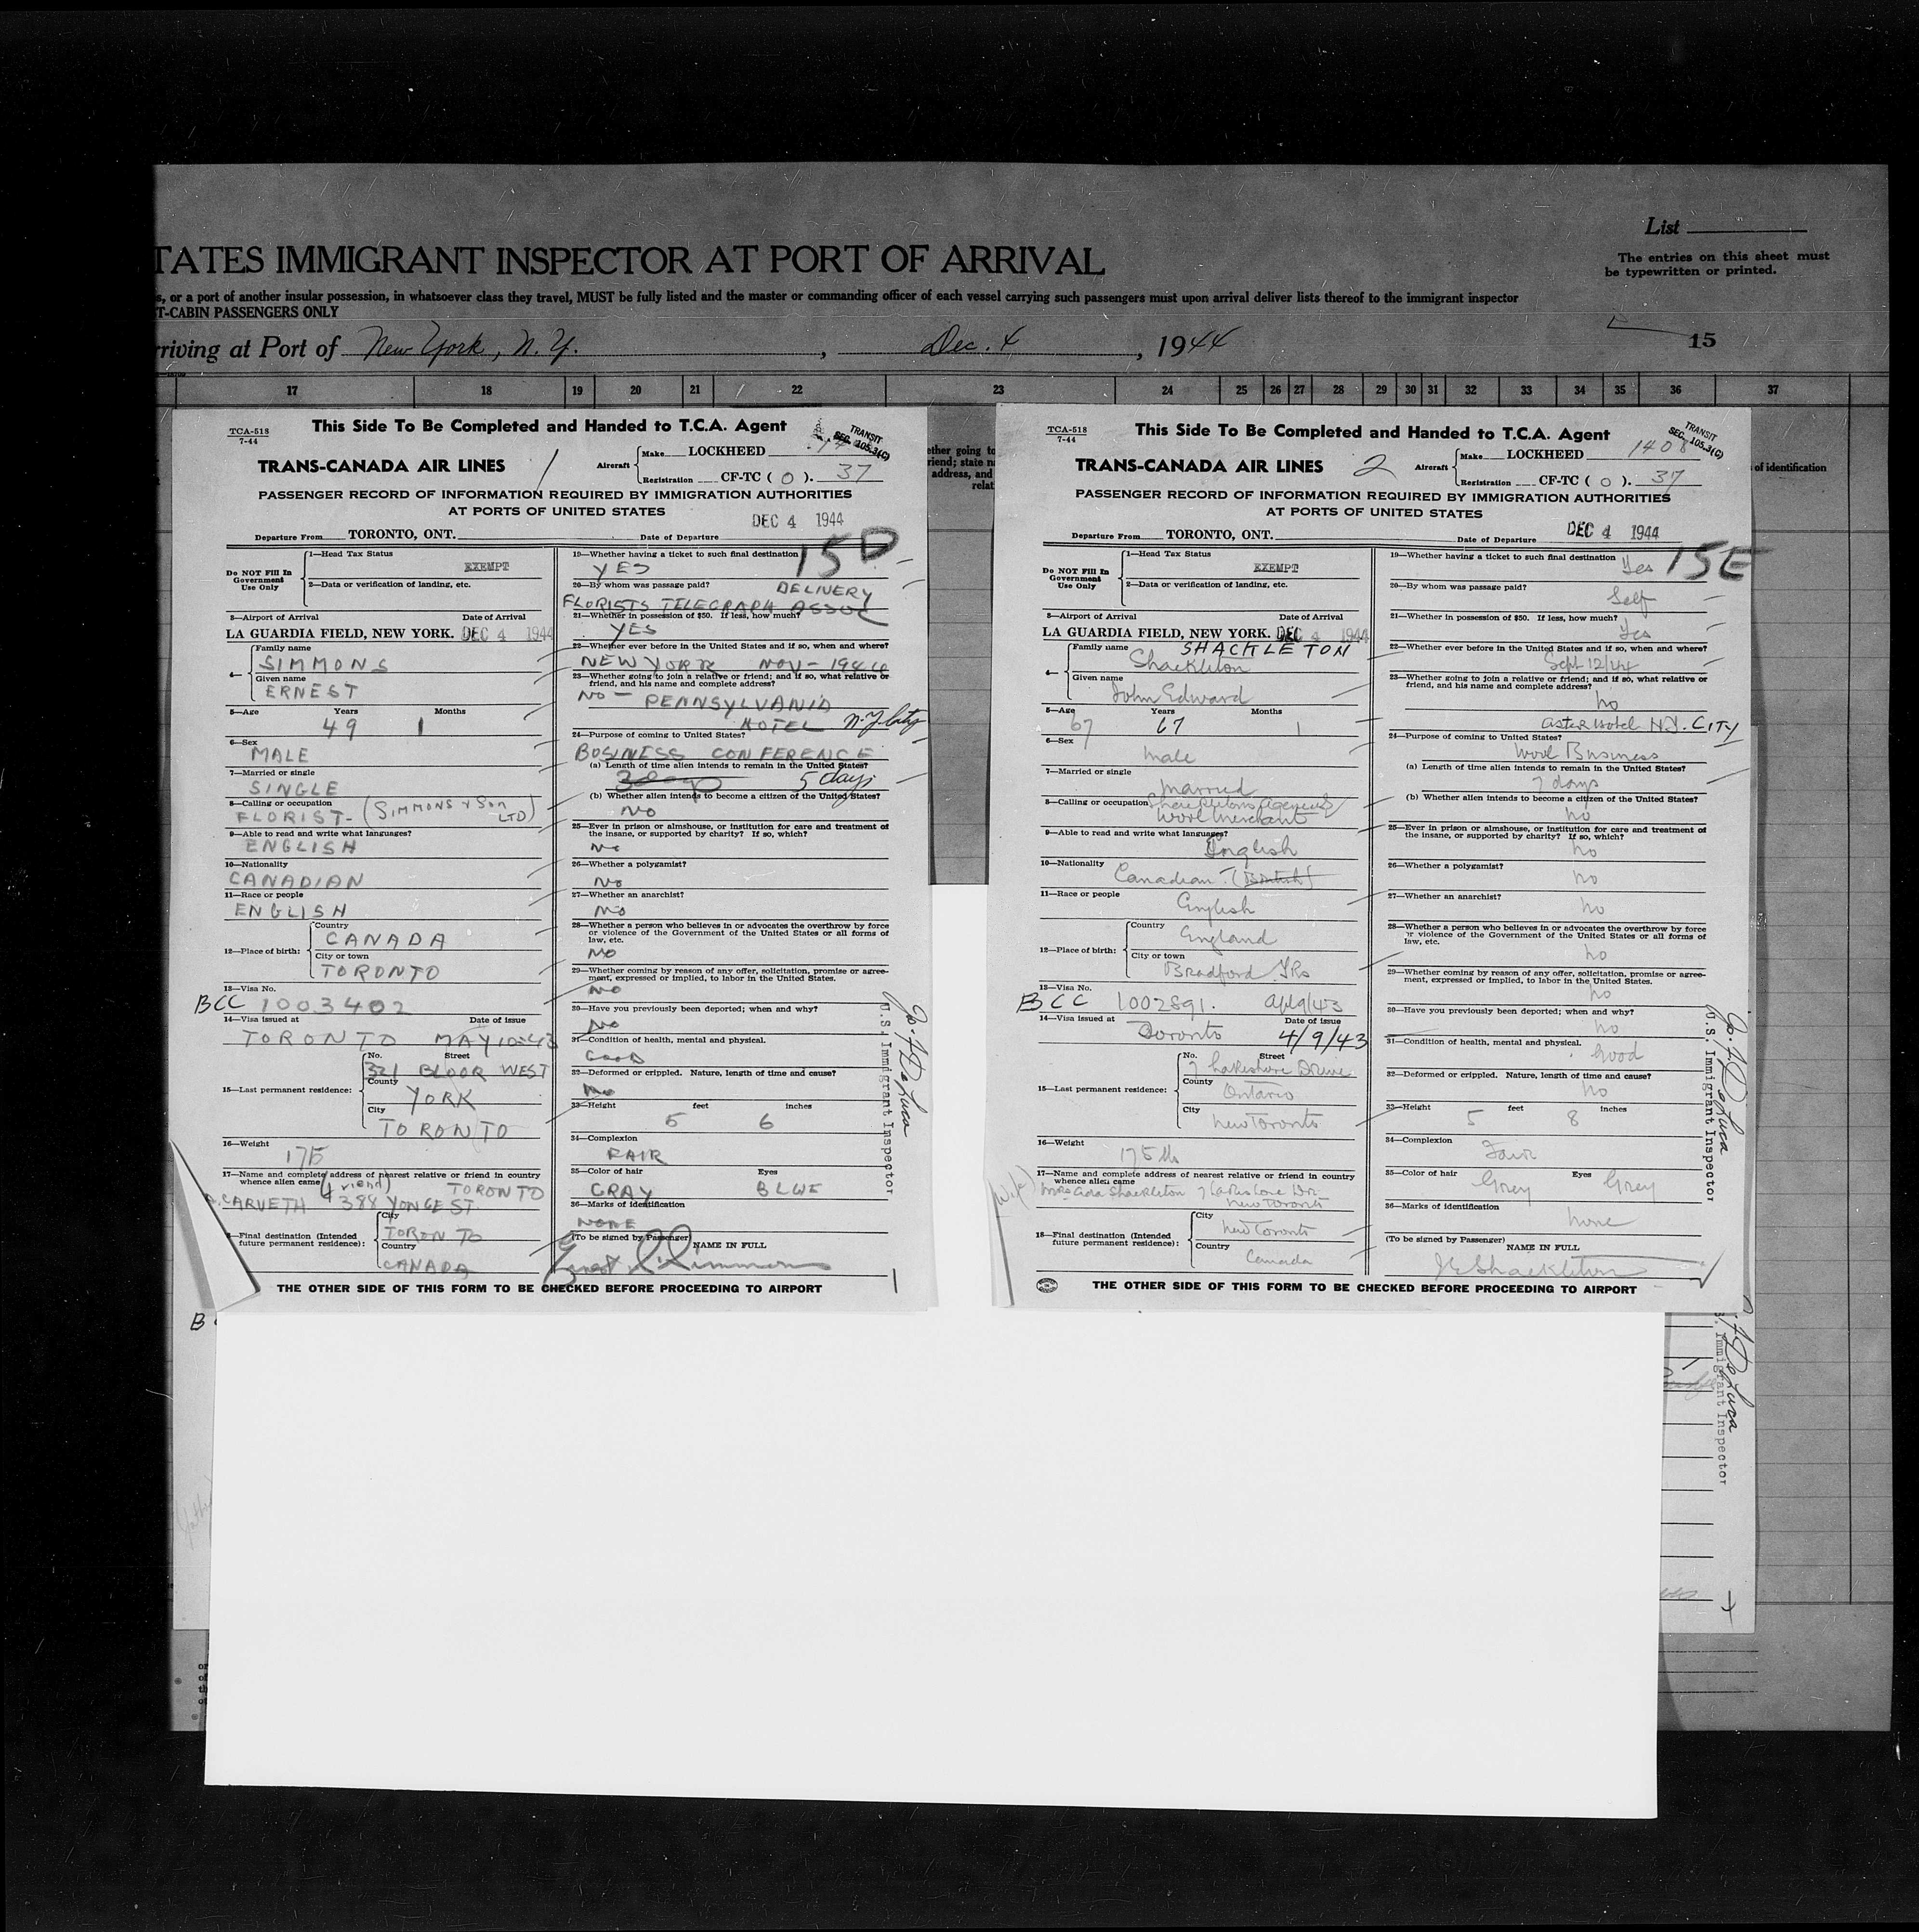 List
The entries on this sheet must
be typewritten or printed.
TATES IMMIGRANT INSPECTOR AT PORT OF ARRIVAL
s, or a port of another insular possession, in whatsoever class they travel, MUST be fully listed and the master or commanding officer of each vessel carrying such passengers must upon arrival deliver lists thereof to the immigrant inspector
T-CABIN PASSENGERS ONLY
rriving at Port of New York, N.Y. , Dec. 4 , 1944
15
17 18 19 20 21 22 23 24 25 26 27 28 29 30 31 32 33 34 35 36 37
TCA-518
7-44
This Side To Be Completed and Handed to T.C.A. Agent
TRANSIT
SEC. 105.3(C)
TRANS-CANADA AIR LINES 1
Aircraft Make LOCKHEED
Registration CF-TC ( O ). 37
PASSENGER RECORD OF INFORMATION REQUIRED BY IMMIGRATION AUTHORITIES
AT PORTS OF UNITED STATES
DEC 4 1944
Departure From TORONTO, ONT. Date of Departure
15D
Do NOT Fill In
Government
Use Only
1—Head Tax Status
EXEMPT
2—Data or verification of landing, etc.
3—Airport of Arrival Date of Arrival
LA GUARDIA FIELD, NEW YORK. DEC 4 1944
4— Family name
SIMMONS
Given name
ERNEST
5—Age Years Months
49 1
6—Sex
MALE
7—Married or single
SINGLE
8—Calling or occupation
FLORIST- (SIMMONS & Son LTD)
9—Able to read and write what languages?
ENGLISH
10—Nationality
CANADIAN
11—Race or people
ENGLISH
12—Place of birth: Country
CANADA
City or town
TORONTO
13—Visa No.
BCC 1003402
14—Visa issued at Date of issue
TORONTO MAY 10-43
15—Last permanent residence: No. Street
321 BLOOR WEST
County
YORK
City
TORONTO
16—Weight
175
17—Name and complete address of nearest relative or friend in country
whence alien came (friend) TORONTO
CARVETH 1388 YONGE ST.
—Final destination (Intended
future permanent residence): City
TORONTO
Country
CANADA
19—Whether having a ticket to such final destination
YES
20—By whom was passage paid? DELIVERY
FLORISTS TELEGRAPH ASSOC
21—Whether in possession of $50. If less, how much?
YES
22—Whether ever before in the United States and if so, when and where?
NEW YORK NOV - 1944
23—Whether going to join a relative or friend; and if so, what relative or
friend, and his name and complete address?
NO - PENNSYLVANIA
HOTEL N.Y. City
24—Purpose of coming to United States?
BUSINESS CONFERENCE
(a) Length of time alien intends to remain in the United States?
3 days 5 days
(b) Whether alien intends to become a citizen of the United States?
NO
25—Ever in prison or almshouse, or institution for care and treatment of
the insane, or supported by charity? If so, which?
No
26—Whether a polygamist?
No
27—Whether an anarchist?
No
28—Whether a person who believes in or advocates the overthrow by force
or violence of the Government of the United States or all forms of
law, etc.
NO
29—Whether coming by reason of any offer, solicitation, promise or agree-
ment, expressed or implied, to labor in the United States.
NO
30—Have you previously been deported; when and why?
No
31—Condition of health, mental and physical.
GOOD
32—Deformed or crippled. Nature, length of time and cause?
No
33—Height feet inches
5 6
34—Complexion
FAIR
35—Color of hair Eyes
GRAY BLUE
36—Marks of identification
NONE
(To be signed by Passenger) NAME IN FULL
Ernest Simmons
THE OTHER SIDE OF THIS FORM TO BE CHECKED BEFORE PROCEEDING TO AIRPORT
U.S. Immigrant Inspector
TCA-518
7-44
This Side To Be Completed and Handed to T.C.A. Agent
TRANSIT
SEC. 105.3(C)
1408
TRANS-CANADA AIR LINES 2
Aircraft Make LOCKHEED
Registration CF-TC ( O ). 37
PASSENGER RECORD OF INFORMATION REQUIRED BY IMMIGRATION AUTHORITIES
AT PORTS OF UNITED STATES
DEC 4 1944
Departure From TORONTO, ONT. Date of Departure
15E
Do NOT Fill In
Government
Use Only
1—Head Tax Status
EXEMPT
2—Data or verification of landing, etc.
3—Airport of Arrival Date of Arrival
LA GUARDIA FIELD, NEW YORK. DEC 4 1944
4— Family name SHACKLETON
Shackleton
Given name
John Edward
5—Age Years Months
67 67 1
6—Sex
Male
7—Married or single
Married
8—Calling or occupation Shackletons Agency
Wool Merchant
9—Able to read and write what languages?
English
10—Nationality
Canadian. (British)
11—Race or people
English
12—Place of birth: Country
England
City or town
Bradford Yks
13—Visa No.
BCC 1002891. Apl 9/43
14—Visa issued at Date of issue
Toronto 4/9/43
15—Last permanent residence: No. Street
7 Lakeshore Drive
County
Ontario
City
New Toronto
16—Weight
175 lbs
17—Name and complete address of nearest relative or friend in country
whence alien came
(Wife) Mrs Ada Shackleton 7 Lakeshore Dr.
New Toronto
18—Final destination (Intended
future permanent residence): City
New Toronto
Country
Canada
19—Whether having a ticket to such final destination
Yes
20—By whom was passage paid?
Self
21—Whether in possession of $50. If less, how much?
Yes
22—Whether ever before in the United States and if so, when and where?
Sept 12/44
23—Whether going to join a relative or friend; and if so, what relative or
friend, and his name and complete address?
no
Aster Hotel N.Y. CITY
24—Purpose of coming to United States?
Wool Business
(a) Length of time alien intends to remain in the United States?
7 days
(b) Whether alien intends to become a citizen of the United States?
no
25—Ever in prison or almshouse, or institution for care and treatment of
the insane, or supported by charity? If so, which?
no
26—Whether a polygamist?
no
27—Whether an anarchist?
no
28—Whether a person who believes in or advocates the overthrow by force
or violence of the Government of the United States or all forms of
law, etc.
no
29—Whether coming by reason of any offer, solicitation, promise or agree-
ment, expressed or implied, to labor in the United States.
no
30—Have you previously been deported; when and why?
no
31—Condition of health, mental and physical.
good
32—Deformed or crippled. Nature, length of time and cause?
no
33—Height feet inches
5 8
34—Complexion
Fair
35—Color of hair Eyes
Grey Grey
36—Marks of identification
none
(To be signed by Passenger) NAME IN FULL
J E Shackleton
THE OTHER SIDE OF THIS FORM TO BE CHECKED BEFORE PROCEEDING TO AIRPORT
U.S. Immigrant Inspector
ether going to
riend; state n
address, and
relat
of identification
Immigrant Inspector